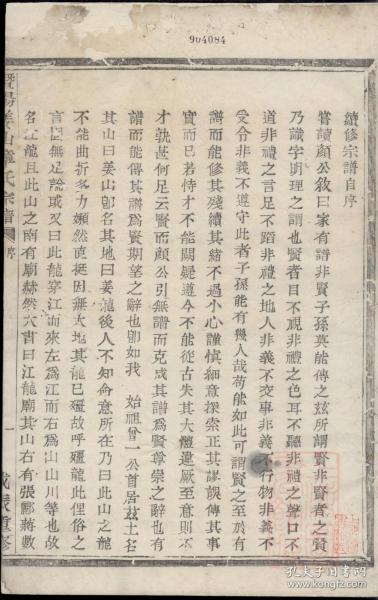 904084
續修宗譜自序
嘗讀顏公敘曰家有譜非賢子孫莫能傳之茲所謂賢非賢者之賢
乃識字明理之謂也賢者目不視非禮之色耳不聽非禮之聲口不
道非禮之言足不蹈非禮之地人非義不交事非義不行物非義不
受令非義不遵守此者子孫能有幾人哉苟能如此可謂賢之至於有
譜而能修其殘續其緒不過小心謹慎細意探索正其謬誤傳其事
實而已若恃才不能闕疑遵今不能從古失其大體違厥至意則不
才孰甚何足云賢而顏公引無譜而克成其譜為賢尊崇之辭也有
譜而能傳其譜為賢期望之辭也卽如我 始祖曾一公首居茲土名
其山曰姜山卽名其地曰姜龍後人不知命意所在乃曰此山之龍
不能曲折多力嬾然直挺因無大地其龍已殭故呼殭龍此俚俗之
言固無足論或又曰此龍穿江而來左為江而右為山山川等也故
名江龍且此山之南有廟赫然大書曰江龍廟其山右有張鄒蔣數
暨陽姜山
氏宗譜
序
一
孔夫子旧书网